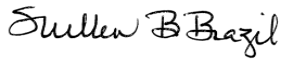 Suellen B Brazil